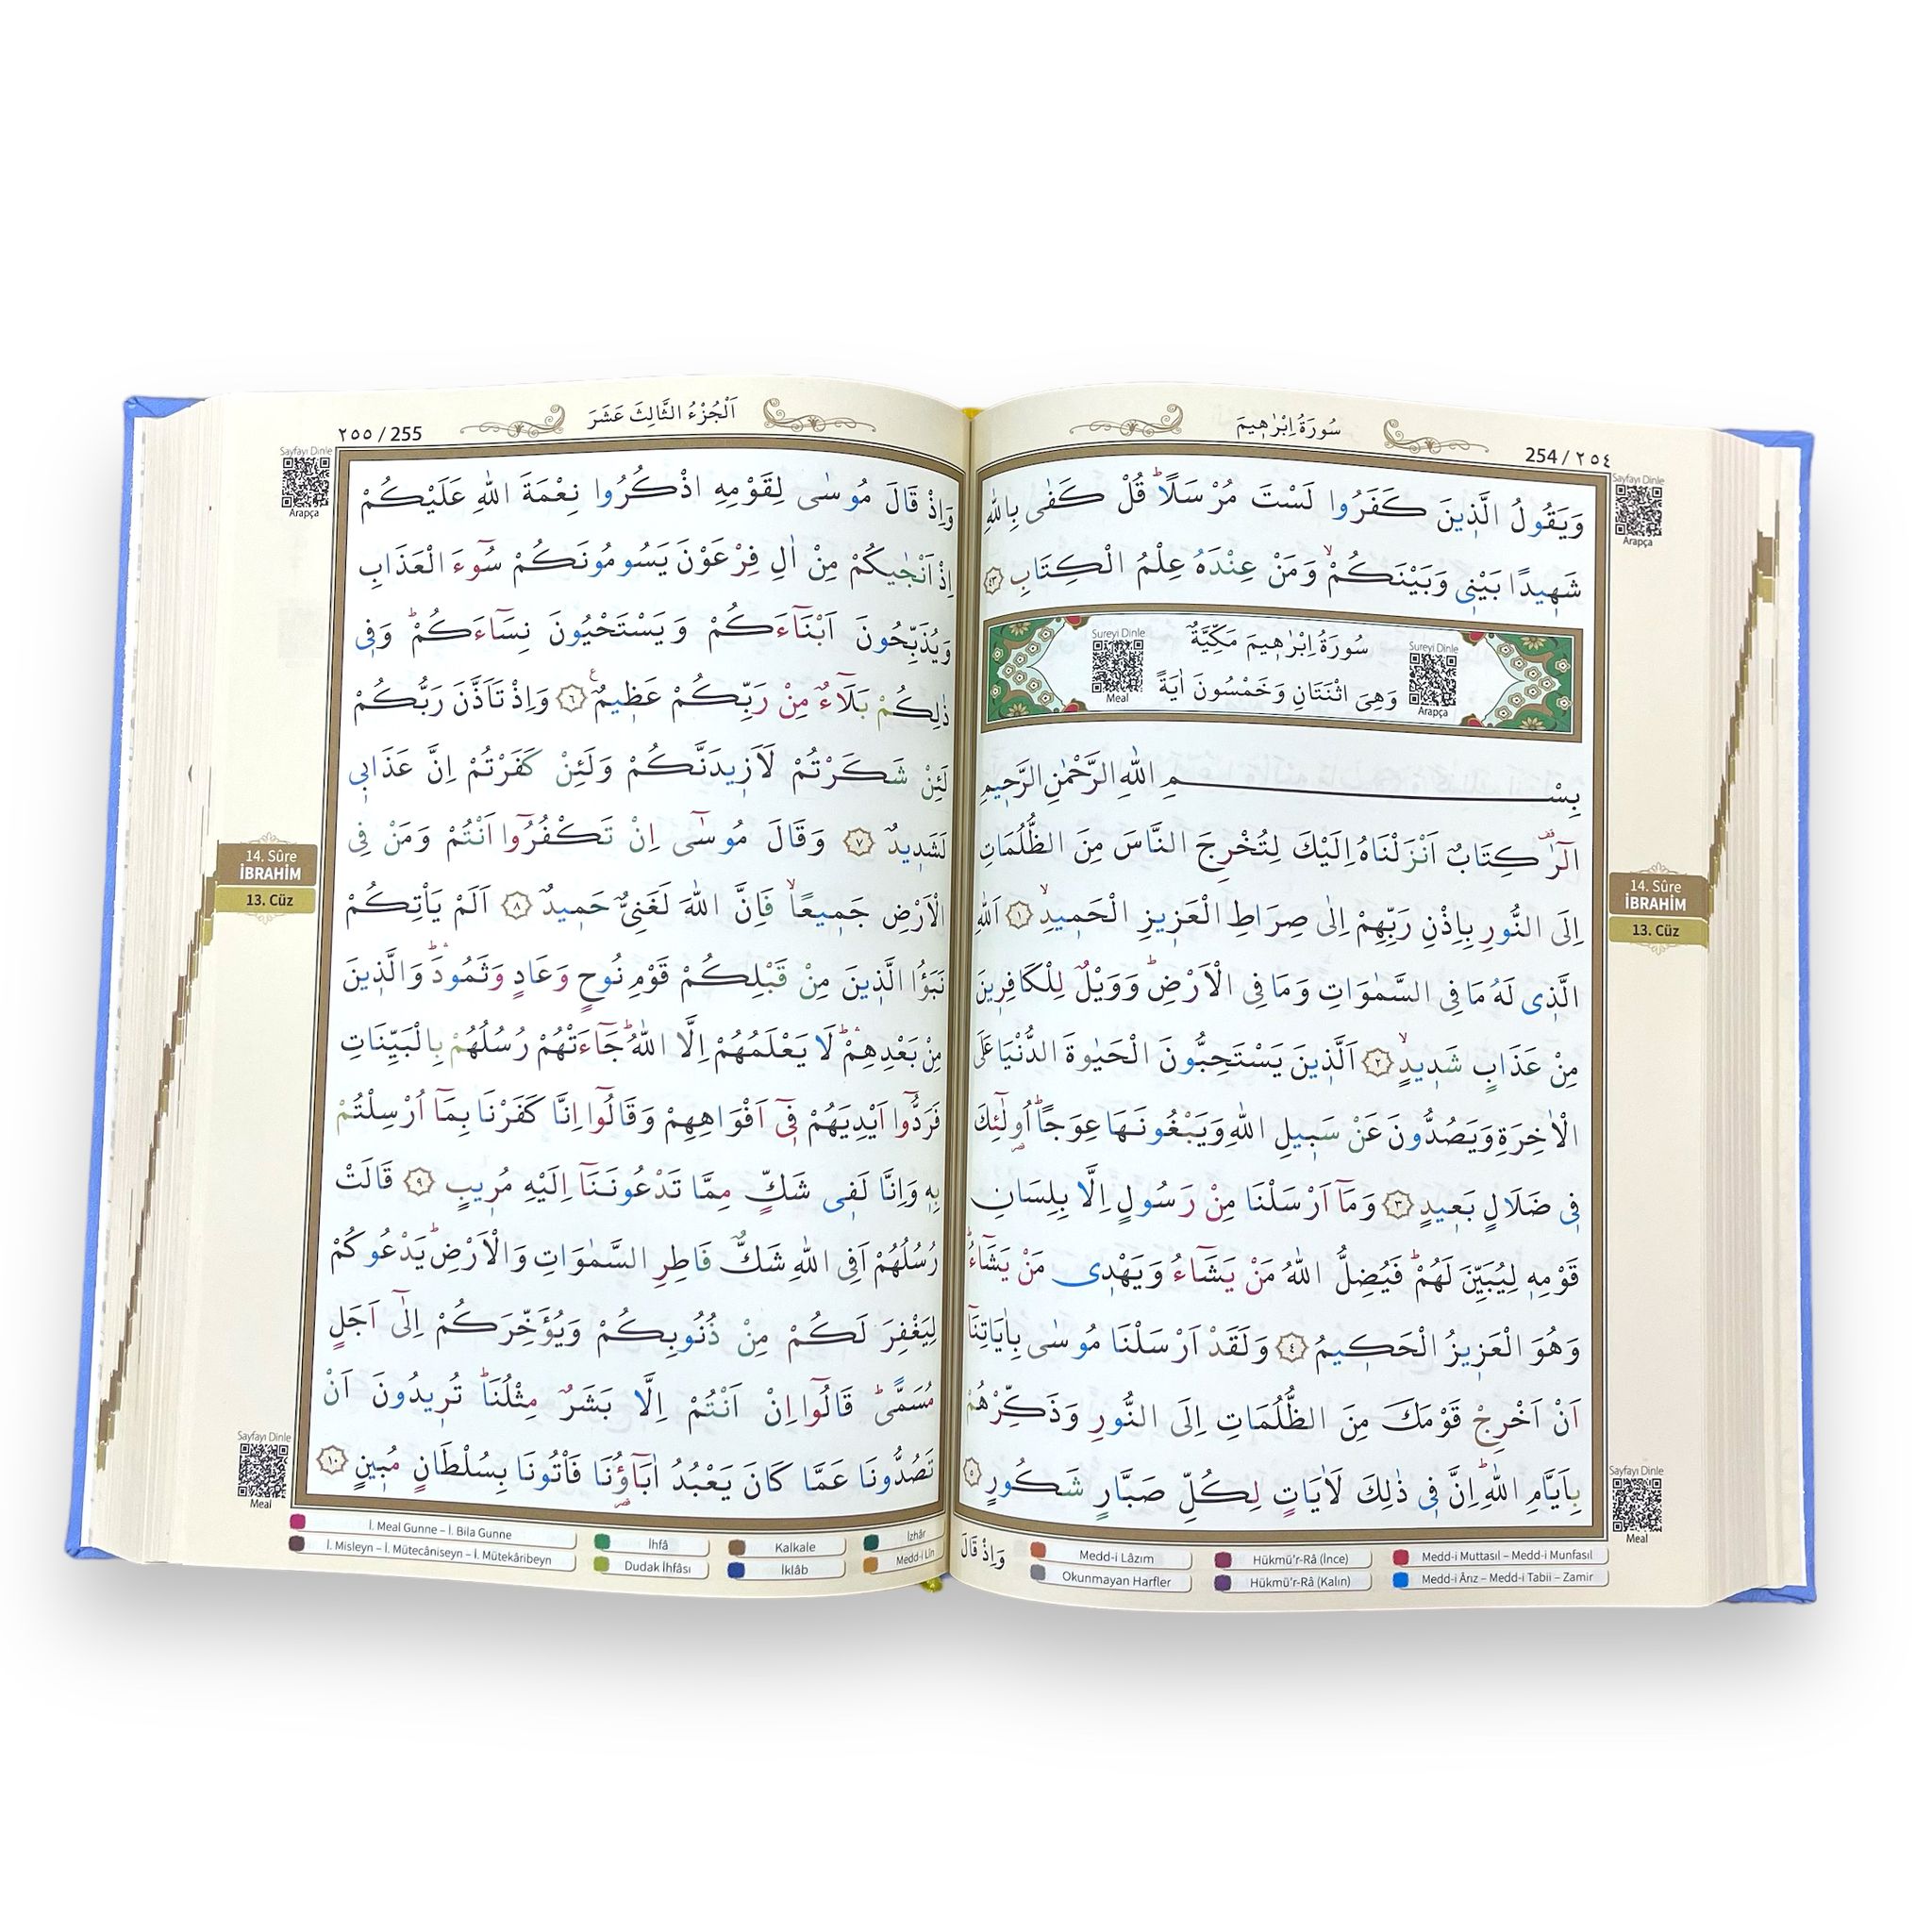 سُورَةُ اِبْرٰه۪يمَ
254 / ٢٥٤
Sayfayı Dinle
Arapça
وَيَقُولُ الَّذ۪ينَ كَفَرُوا لَسْتَ مُرْسَلًاۜ قُلْ كَفٰى بِاللّٰهِ
شَه۪يدًا بَيْن۪ى وَبَيْنَكُمْۙ وَمَنْ عِنْدَهُ عِلْمُ الْكِتَابِ ﴿٤٣﴾
Sureyi Dinle
Meal
سُورَةُ اِبْرٰه۪يمَ مَكِّيَّةٌ
وَهِىَ اثْنَتَانِ وَخَمْسُونَ اٰيَةً
Sureyi Dinle
Arapça
بِسْمِ اللّٰهِ الرَّحْمٰنِ الرَّح۪يمِ
الٓرٰ۠ كِتَابٌ اَنْزَلْنَاهُ اِلَيْكَ لِتُخْرِجَ النَّاسَ مِنَ الظُّلُمَاتِ
اِلَى النُّورِ بِاِذْنِ رَبِّهِمْ اِلٰى صِرَاطِ الْعَز۪يزِ الْحَم۪يدِۙ ﴿١﴾ اَللّٰهِ
الَّذ۪ى لَهُ مَا فِى السَّمٰوَاتِ وَمَا فِى الْاَرْضِۜ وَوَيْلٌ لِلْكَافِر۪ينَ
مِنْ عَذَابٍ شَد۪يدٍۙ ﴿٢﴾ اَلَّذ۪ينَ يَسْتَحِبُّونَ الْحَيٰوةَ الدُّنْيَا عَلَى
الْاٰخِرَةِ وَيَصُدُّونَ عَنْ سَب۪يلِ اللّٰهِ وَيَبْغُونَهَا عِوَجًاۜ اُو۬لٰٓئِكَ
ف۪ى ضَلَالٍ بَع۪يدٍ ﴿٣﴾ وَمَٓا اَرْسَلْنَا مِنْ رَسُولٍ اِلَّا بِلِسَانِ
قَوْمِه۪ لِيُبَيِّنَ لَهُمْۜ فَيُضِلُّ اللّٰهُ مَنْ يَشَٓاءُ وَيَهْد۪ى مَنْ يَشَٓاءُۜ
وَهُوَ الْعَز۪يزُ الْحَك۪يمُ ﴿٤﴾ وَلَقَدْ اَرْسَلْنَا مُوسٰى بِاٰيَاتِنَٓا
اَنْ اَخْرِجْ قَوْمَكَ مِنَ الظُّلُمَاتِ اِلَى النُّورِ وَذَكِّرْهُمْ
بِاَيَّامِ اللّٰهِۜ اِنَّ ف۪ى ذٰلِكَ لَاٰيَاتٍ لِكُلِّ صَبَّارٍ شَكُورٍ ﴿٥﴾
14. Sûre
İBRAHİM
13. Cüz
Sayfayı Dinle
Meal
وَاِذْ قَالَ
Medd-i Lâzım
Hükmü'r-Râ (İnce)
Medd-i Muttasıl – Medd-i Munfasıl
Okunmayan Harfler
Hükmü'r-Râ (Kalın)
Medd-i Ârız – Medd-i Tabii – Zamir
٢٥٥ / 255
اَلْجُزْءُ الثَّالِثَ عَشَرَ
Sayfayı Dinle
Arapça
وَاِذْ قَالَ مُوسٰى لِقَوْمِهِ اذْكُرُوا نِعْمَةَ اللّٰهِ عَلَيْكُمْ
اِذْ اَنْجٰيكُمْ مِنْ اٰلِ فِرْعَوْنَ يَسُومُونَكُمْ سُٓوءَ الْعَذَابِ
وَيُذَبِّحُونَ اَبْنَٓاءَكُمْ وَيَسْتَحْيُونَ نِسَٓاءَكُمْۜ وَف۪ى
ذٰلِكُمْ بَلَٓاءٌ مِنْ رَبِّكُمْ عَظ۪يمٌ۟ ﴿٦﴾ وَاِذْ تَاَذَّنَ رَبُّكُمْ
لَئِنْ شَكَرْتُمْ لَاَز۪يدَنَّكُمْ وَلَئِنْ كَفَرْتُمْ اِنَّ عَذَاب۪ى
لَشَد۪يدٌ ﴿٧﴾ وَقَالَ مُوسٰٓى اِنْ تَكْفُرُٓوا اَنْتُمْ وَمَنْ فِى
الْاَرْضِ جَم۪يعًاۙ فَاِنَّ اللّٰهَ لَغَنِىٌّ حَم۪يدٌ ﴿٨﴾ اَلَمْ يَاْتِكُمْ
نَبَؤُا الَّذ۪ينَ مِنْ قَبْلِكُمْ قَوْمِ نُوحٍ وَعَادٍ وَثَمُودَۜۛ وَالَّذ۪ينَ
مِنْ بَعْدِهِمْۜۛ لَا يَعْلَمُهُمْ اِلَّا اللّٰهُۜ جَٓاءَتْهُمْ رُسُلُهُمْ بِالْبَيِّنَاتِ
فَرَدُّٓوا اَيْدِيَهُمْ ف۪ٓى اَفْوَاهِهِمْ وَقَالُٓوا اِنَّا كَفَرْنَا بِمَٓا اُرْسِلْتُمْ
بِه۪ وَاِنَّا لَف۪ى شَكٍّ مِمَّا تَدْعُونَنَٓا اِلَيْهِ مُر۪يبٍ ﴿٩﴾ قَالَتْ
رُسُلُهُمْ اَفِى اللّٰهِ شَكٌّ فَاطِرِ السَّمٰوَاتِ وَالْاَرْضِۜ يَدْعُوكُمْ
لِيَغْفِرَ لَكُمْ مِنْ ذُنُوبِكُمْ وَيُؤَخِّرَكُمْ اِلٰٓى اَجَلٍ
مُسَمًّىۜ قَالُٓوا اِنْ اَنْتُمْ اِلَّا بَشَرٌ مِثْلُنَاۜ تُر۪يدُونَ اَنْ
تَصُدُّونَا عَمَّا كَانَ يَعْبُدُ اٰبَٓاؤُ۬نَا فَاْتُونَا بِسُلْطَانٍ مُب۪ينٍ ﴿١٠﴾
14. Sûre
İBRAHİM
13. Cüz
Sayfayı Dinle
Meal
İ. Meal Gunne – İ. Bila Gunne
İhfâ
Kalkale
İzhâr
İ. Misleyn – İ. Mütecâniseyn – İ. Mütekâribeyn
Dudak İhfâsı
İklâb
Medd-i Lîn